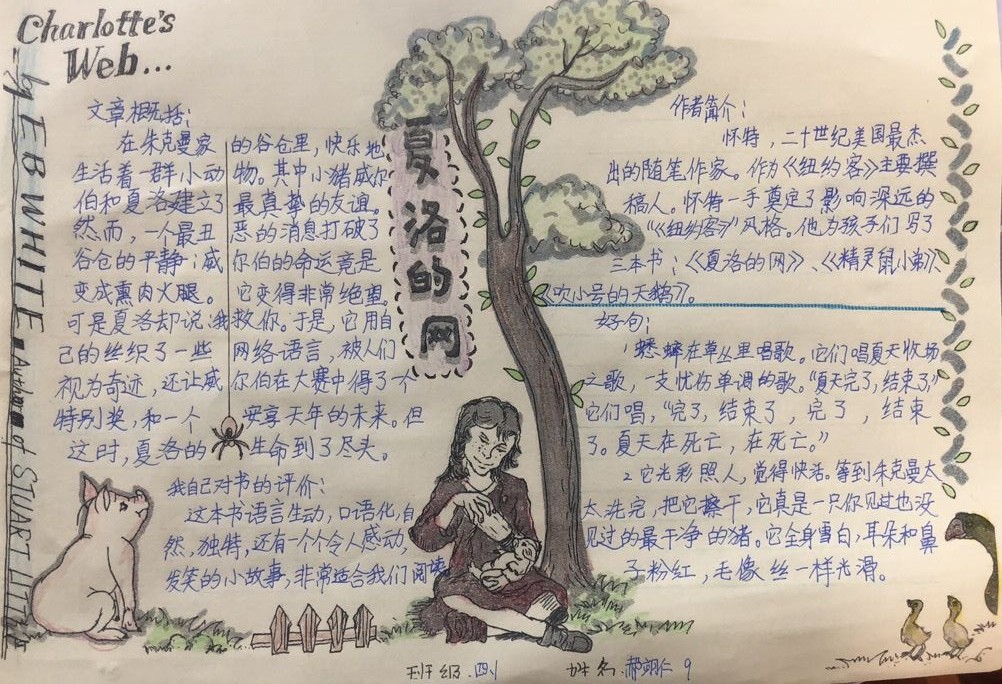 Charlotte's
Web...
by E B WHITE Author of STUART LITTLE
夏洛的网
文章概括：
在朱克曼家的谷仓里，快乐地
生活着一群小动物。其中小猪威尔
伯和夏洛建立了最真挚的友谊。
然而，一个最丑恶的消息打破了
谷仓的平静：威尔伯的命运竟是
变成熏肉火腿。它变得非常绝望。
可是夏洛却说：我救你。于是，它用自
己的丝织了一些网络语言，被人们
视为奇迹，还让威尔伯在大赛中得了一个
特别奖，和一个安享天年的未来。但
这时，夏洛的生命到了尽头。
我自己对书的评价：
这本书语言生动，口语化，自
然，独特，还有一个个令人感动，
发笑的小故事，非常适合我们阅读
作者简介：
怀特，二十世纪美国最杰
出的随笔作家。作为《纽约客》主要撰
稿人。怀特一手奠定了影响深远的
“《纽约客》”风格。他为孩子们写了
三本书：《夏洛的网》、《精灵鼠小弟》、
《吹小号的天鹅》。
好句：
1 蟋蟀在草丛里唱歌。它们唱夏天收场
之歌，一支忧伤单调的歌。“夏天完了，结束了，”
它们唱，“完了，结束了，完了，结束
了。夏天在死亡，在死亡。”
2 它光彩照人，觉得快活。等到朱克曼太
太洗完，把它擦干，它真是一只你见过也没
见过的最干净的猪。它全身雪白，耳朵和鼻
子粉红，毛像丝一样光滑。
班级.四1 姓名.郝翊仁 9